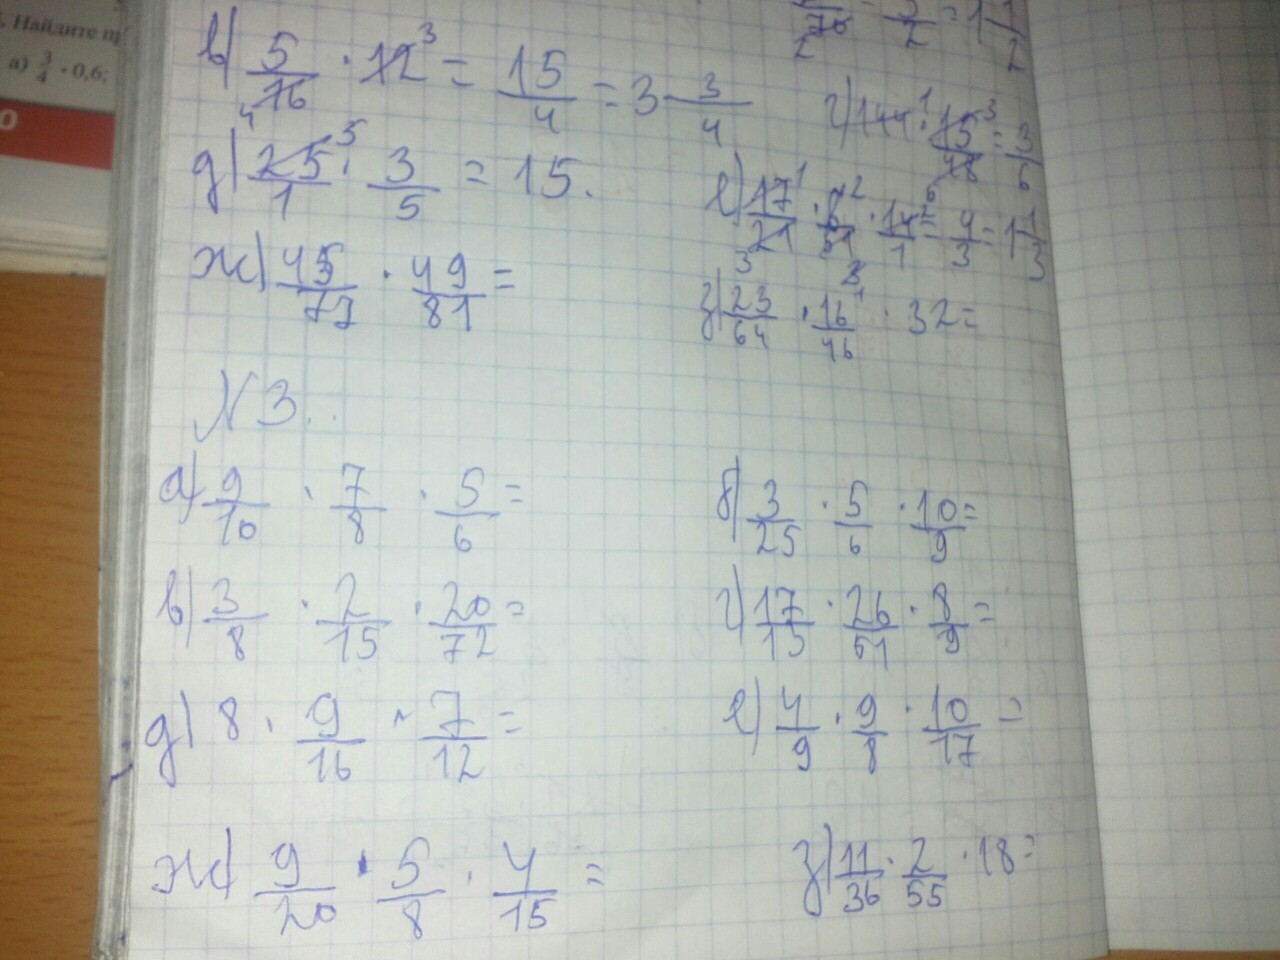 Найдите
а) 3/4 · 0,6;
в) 5/16 · 12 3 = 15/4 = 3 3/4
4
г) 144 1 · 15 3/18 = 3/6
д) 25 5/1 · 3/5 = 15.
ж) 45/77 · 49/81 =
з) 23/64 · 16 1/46 · 32 =
N 3.
а) 9/10 · 7/8 · 5/6 =
б) 3/25 · 5/6 · 10/9 =
в) 3/8 · 2/15 · 20/72 =
г) 17/13 · 26/51 · 8/9 =
д) 8 · 9/16 · 7/12 =
е) 4/9 · 9/8 · 10/17 =
ж) 9/20 · 5/8 · 4/15 =
з) 11/36 · 2/55 · 18 =